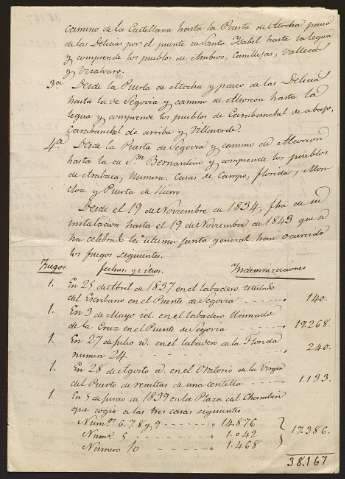 camino de la Castellana hasta la Puerta de Atocha paseo
de las Delicias por el puente de Santa Isabel hasta la legua
y comprende los pueblos de Ambroz, Canillejas, Vallecas
y Vicalvaro.
3a Desde la Puerta de Atocha y paseo de las Delicias
hasta la de Segovia y camino de Alcorcon hasta la
legua y comprende los pueblos de Carabanchel de abajo,
Carabanchel de arriba y Villaverde.
4a Desde la Puerta de Segovia y camino de Alcorcon
hasta la de Sn Bernardino y comprende los pueblos
de Aravaca, Humera, Casa de Campo, Florida, Mon
cloa y Puerta de hierro.
Desde el 19 de Noviembre de 1834, fha de su
instalacion hasta el 19 de Noviembre de 1843 que se
ha celebrado la ultima junta general han ocurrido
los fuegos siguientes.
Fuegos fechas y sitios. Indemnizaciones
1. En 25 de Abril de 1837 en el labadero titulado
del en el Puente de Segovia 140.
1. En 3 de Mayo id. en el labadero
de la Cruz en el Puente de Segovia 19.268.
1. En 27 de Julio id. en el labadero de la Florida
numero 24. 240.
1. En 28 de Agosto id. en el Oratorio de la Virgen
del Puerto de resultas de una centella 1.133.
1. En 5 de Junio de 1839 en la Plaza del
que cogio a las tres casas siguientes
Numos 6. 7. 8 y 9 14.876
Numo 5 1.042 17.386.
Numero 10 1.468
38.167